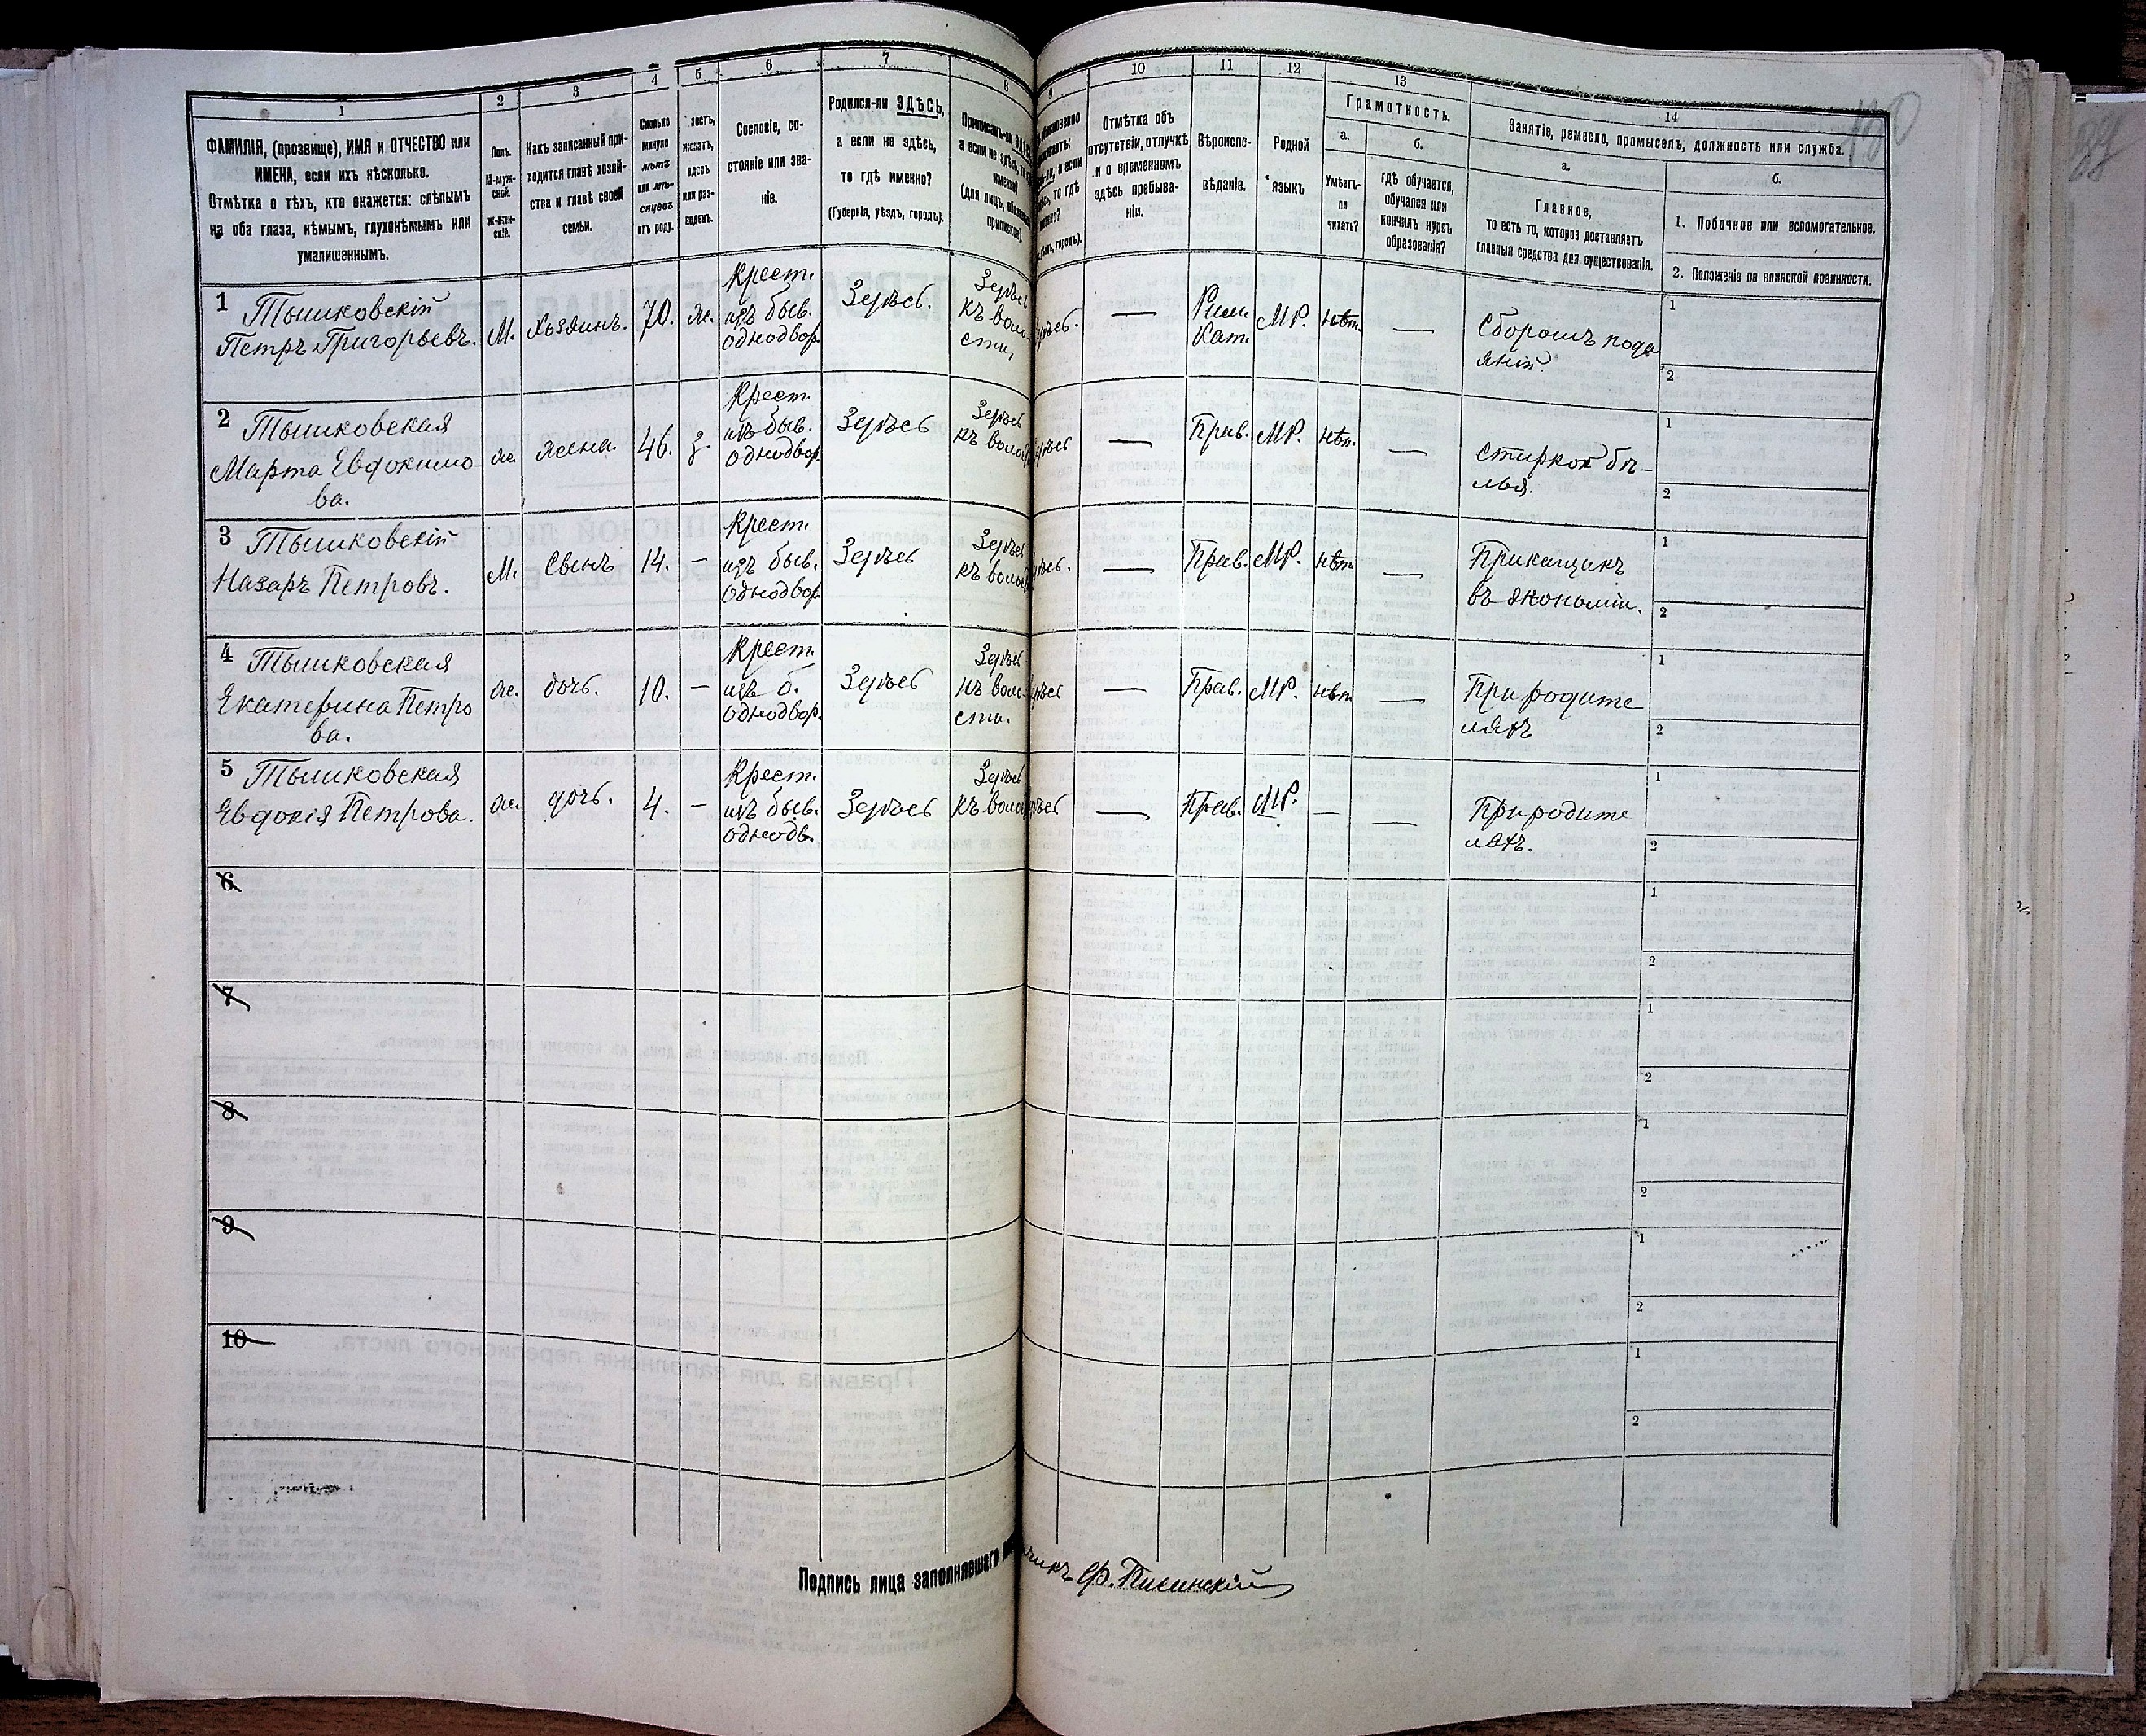 1
2
3
4
5
6
7
8
9
10
11
12
13
14
ФАМИЛІЯ, (прозвище), ИМЯ и ОТЧЕСТВО или
ИМЕНА, если ихъ нѣсколько.
Отмѣтка о тѣхъ, кто окажется: слѣпымъ
на оба глаза, нѣмымъ, глухонѣмымъ или
умалишеннымъ.
Полъ.
М-муж-
ской.
Ж-жен-
скій.
Какъ записанный при-
ходится главѣ хозяй-
ства и главѣ своей
семьи.
Сколько
минуло
лѣтъ
или мѣ-
сяцевъ
отъ роду.
Сословіе, со-
стояніе или зва-
ніе.
Родился-ли ЗДѢСЬ,
а если не здѣсь,
то гдѣ именно?
(Губернія, уѣздъ, городъ).
Приписанъ-ли
а если не здѣсь,
Отмѣтка объ
отсутствіи, отлучкѣ
и о временномъ
здѣсь пребыва-
ніи.
Вѣроиспо-
вѣданіе.
Родной
языкъ
Грамотность.
а.
Умѣетъ-
ли
читать?
б.
гдѣ обучается,
обучался или
кончилъ курсъ
образованія?
Занятіе, ремесло, промыселъ, должность или служба.
а.
Главное,
то есть то, которое доставляетъ
главныя средства для существованія.
б.
1. Побочное или вспомогательное.
2. Положеніе по воинской повинности.
1 Тышковскій
Петръ Григорьевъ.
М.
Хозяинъ.
70.
ж.
Крест.
изъ быв.
однодвор.
Здѣсь.
Здѣсь
къ воло-
сти,
—
Рим.
Кат.
МР.
нѣт.
—
Сборомъ пода
яній.
1
2
2 Тышковская
Марта Евдокимо-
ва.
ж.
жена.
46.
з.
Крест.
изъ быв.
однодвор.
Здѣсь
Здѣсь
къ воло
—
Прав.
МР.
нѣт.
—
стиркой бѣ-
лья.
1
2
3 Тышковскій
Назаръ Петровъ.
М.
Сынъ
14.
—
Крест.
изъ быв.
однодвор.
Здѣсь
Здѣсь
къ воло
—
Прав.
МР.
нѣт
—
Приказчикъ
въ экономіи.
1
2
4 Тышковская
Екатерина Петро
ва.
ж.
дочь.
10.
—
Крест.
изъ б.
однодвор.
Здѣсь
Здѣсь
къ воло-
сти.
—
Прав.
МР.
нѣт
—
При родите
ляхъ
1
2
5 Тышковская
Евдокія Петрова.
ж.
дочь.
4.
—
Крест.
изъ быв.
однодв.
Здѣсь
Здѣсь
къ воло
—
Прав.
МР.
—
—
При родите
ляхъ.
1
2
6
1
2
7
1
2
8
1
2
9
1
2
10
1
2
Подпись лица заполнявшаго
Ф. Писинскій